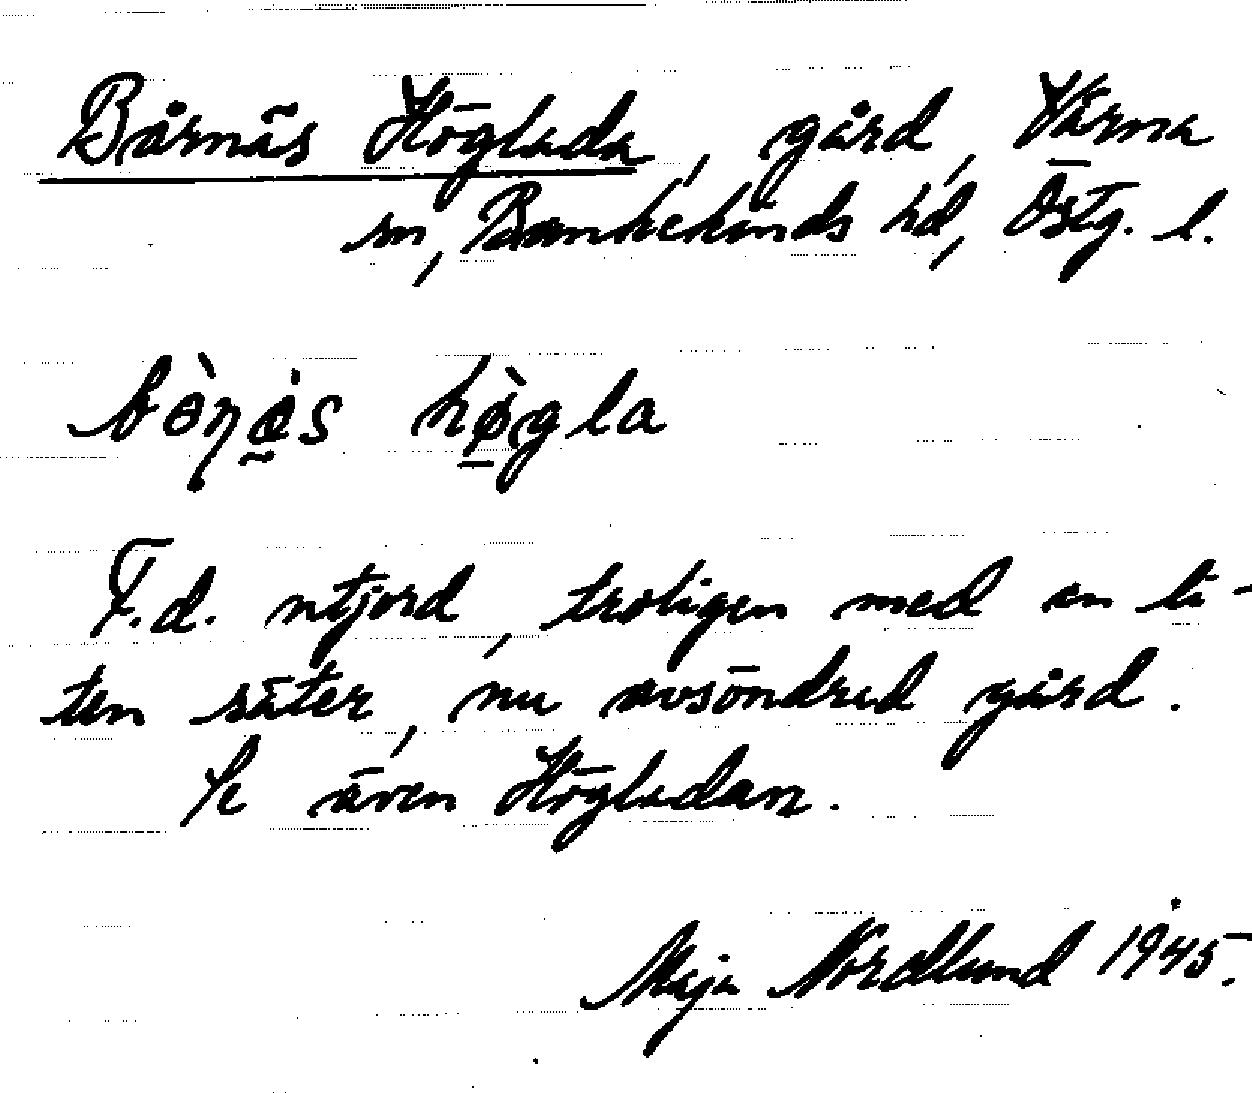 Bårnäs Höglada, gård, Värna
sn, Bankekinds hd, Östg. l.
bȯ̖ɳás hø̀gla
F.d. utjord, troligen med en li-
ten säter, nu avsöndrad gård.
Se även Högladan.
Maja Nordlund 1945.